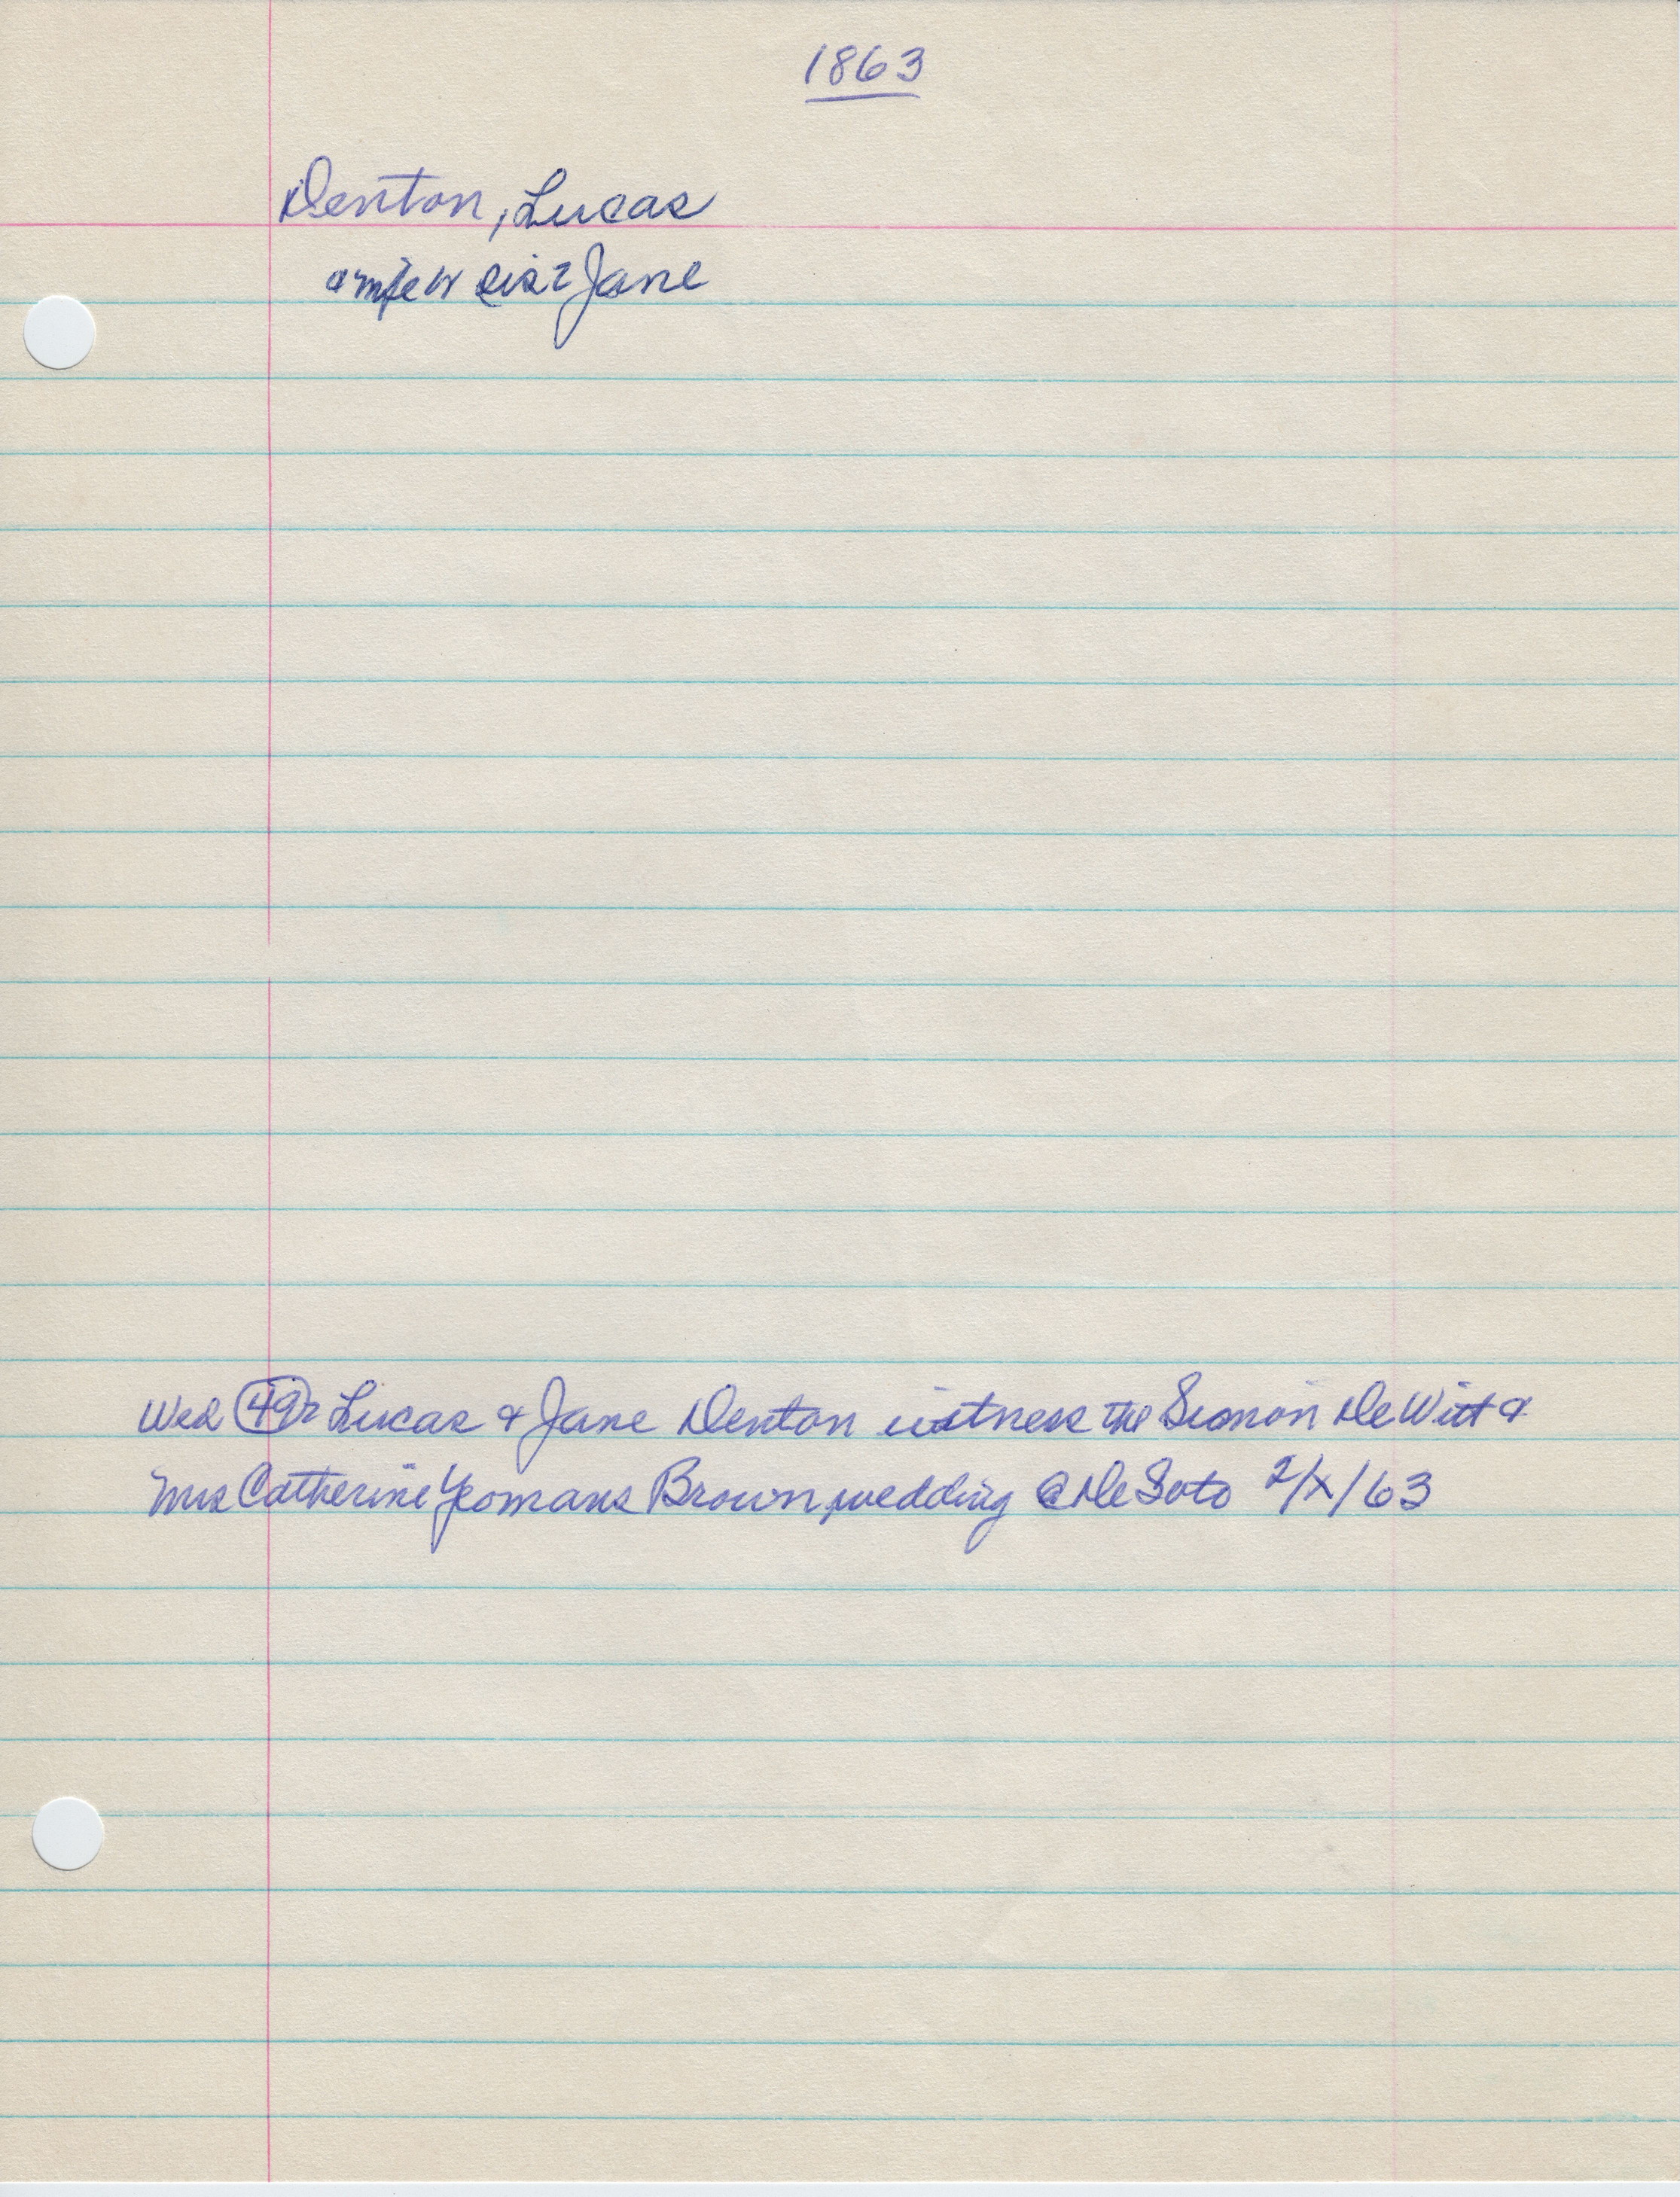 1863
Denton, Lucas
& wife or sis? Jane
Wed 49 Lucas & Jane Denton witness the Simon DeWitt &
Mrs Catherine Yeomans Brown wedding @ DeSoto 2/X/63